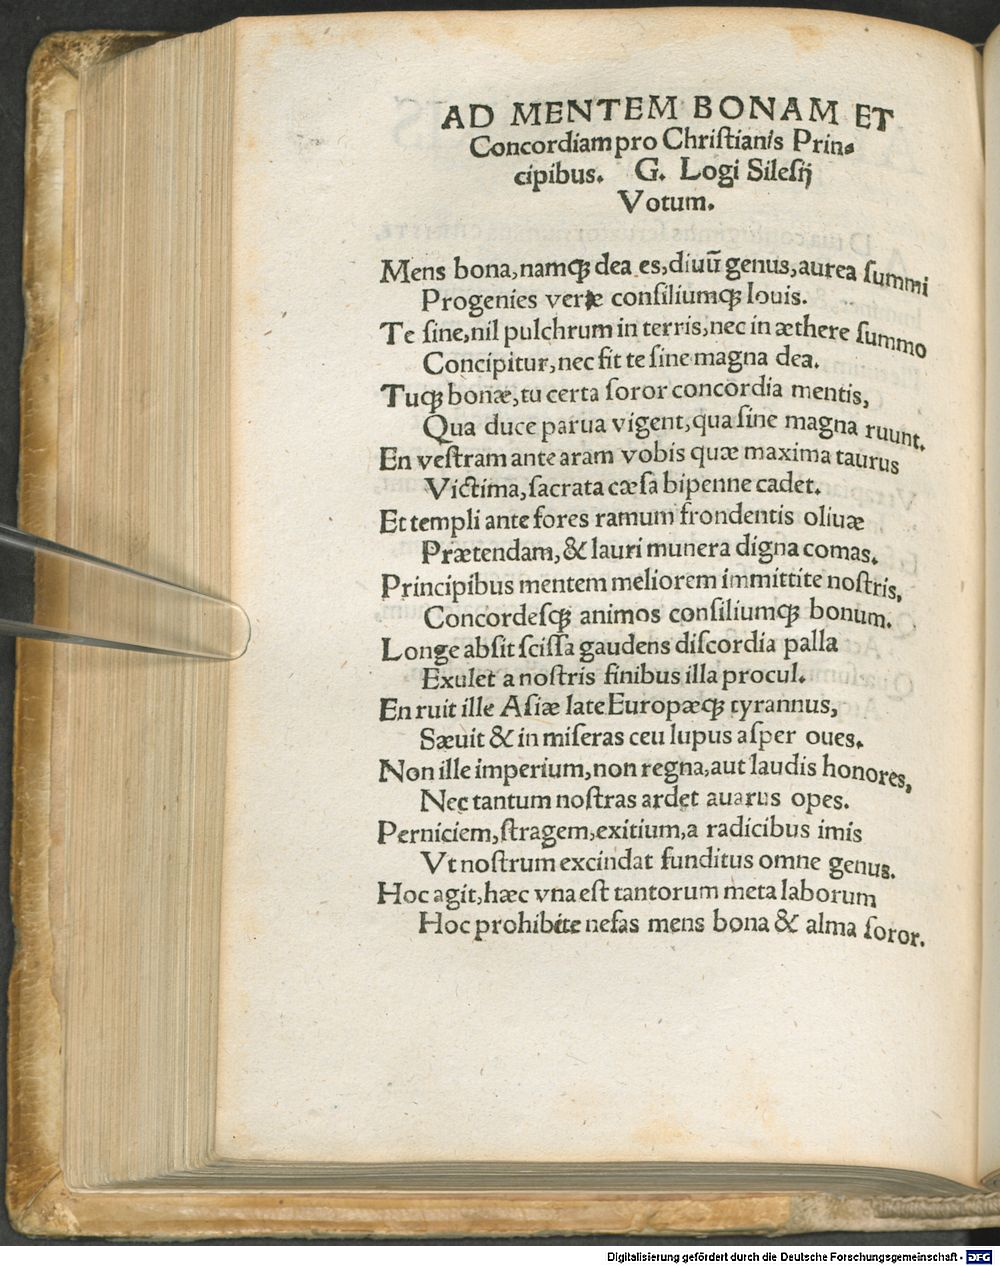 AD MENTEM BONAM ET
Concordiam pro Chriſtianis Prin⸗
cipibus. G. Logi Sileſij
Votum.
Mens bona, namqꝫ dea es, diuũ genus, aurea ſummi
Progenies veræ conſiliumqꝫ Iouis.
Te ſine, nil pulchrum in terris, nec in æthere ſummo
Concipitur, nec fit te ſine magna dea.
Tuqꝫ bonæ, tu certa ſoror concordia mentis,
Qua duce parua vigent, qua ſine magna ruunt.
En veſtram ante aram vobis quæ maxima taurus
Victima, ſacrata cæſa bipenne cadet.
Et templi ante fores ramum frondentis oliuæ
Prætendam, & lauri munera digna comas.
Principibus mentem meliorem immittite noſtris,
Concordeſqꝫ animos conſiliumqꝫ bonum.
Longe abſit ſciſſa gaudens diſcordia palla
Exulet a noſtris finibus illa procul.
En ruit ille Aſiæ late Europæqꝫ tyrannus,
Sæuit & in miſeras ceu lupus aſper oues.
Non ille imperium, non regna, aut laudis honores,
Nec tantum noſtras ardet auarus opes.
Perniciem, ſtragem, exitium, a radicibus imis
Vt noſtrum excindat funditus omne genus.
Hoc agit, hæc vna eſt tantorum meta laborum
Hoc prohibete nefas mens bona & alma ſoror.
Digitalisierung gefördert durch die Deutsche Forschungsgemeinschaft - DFG